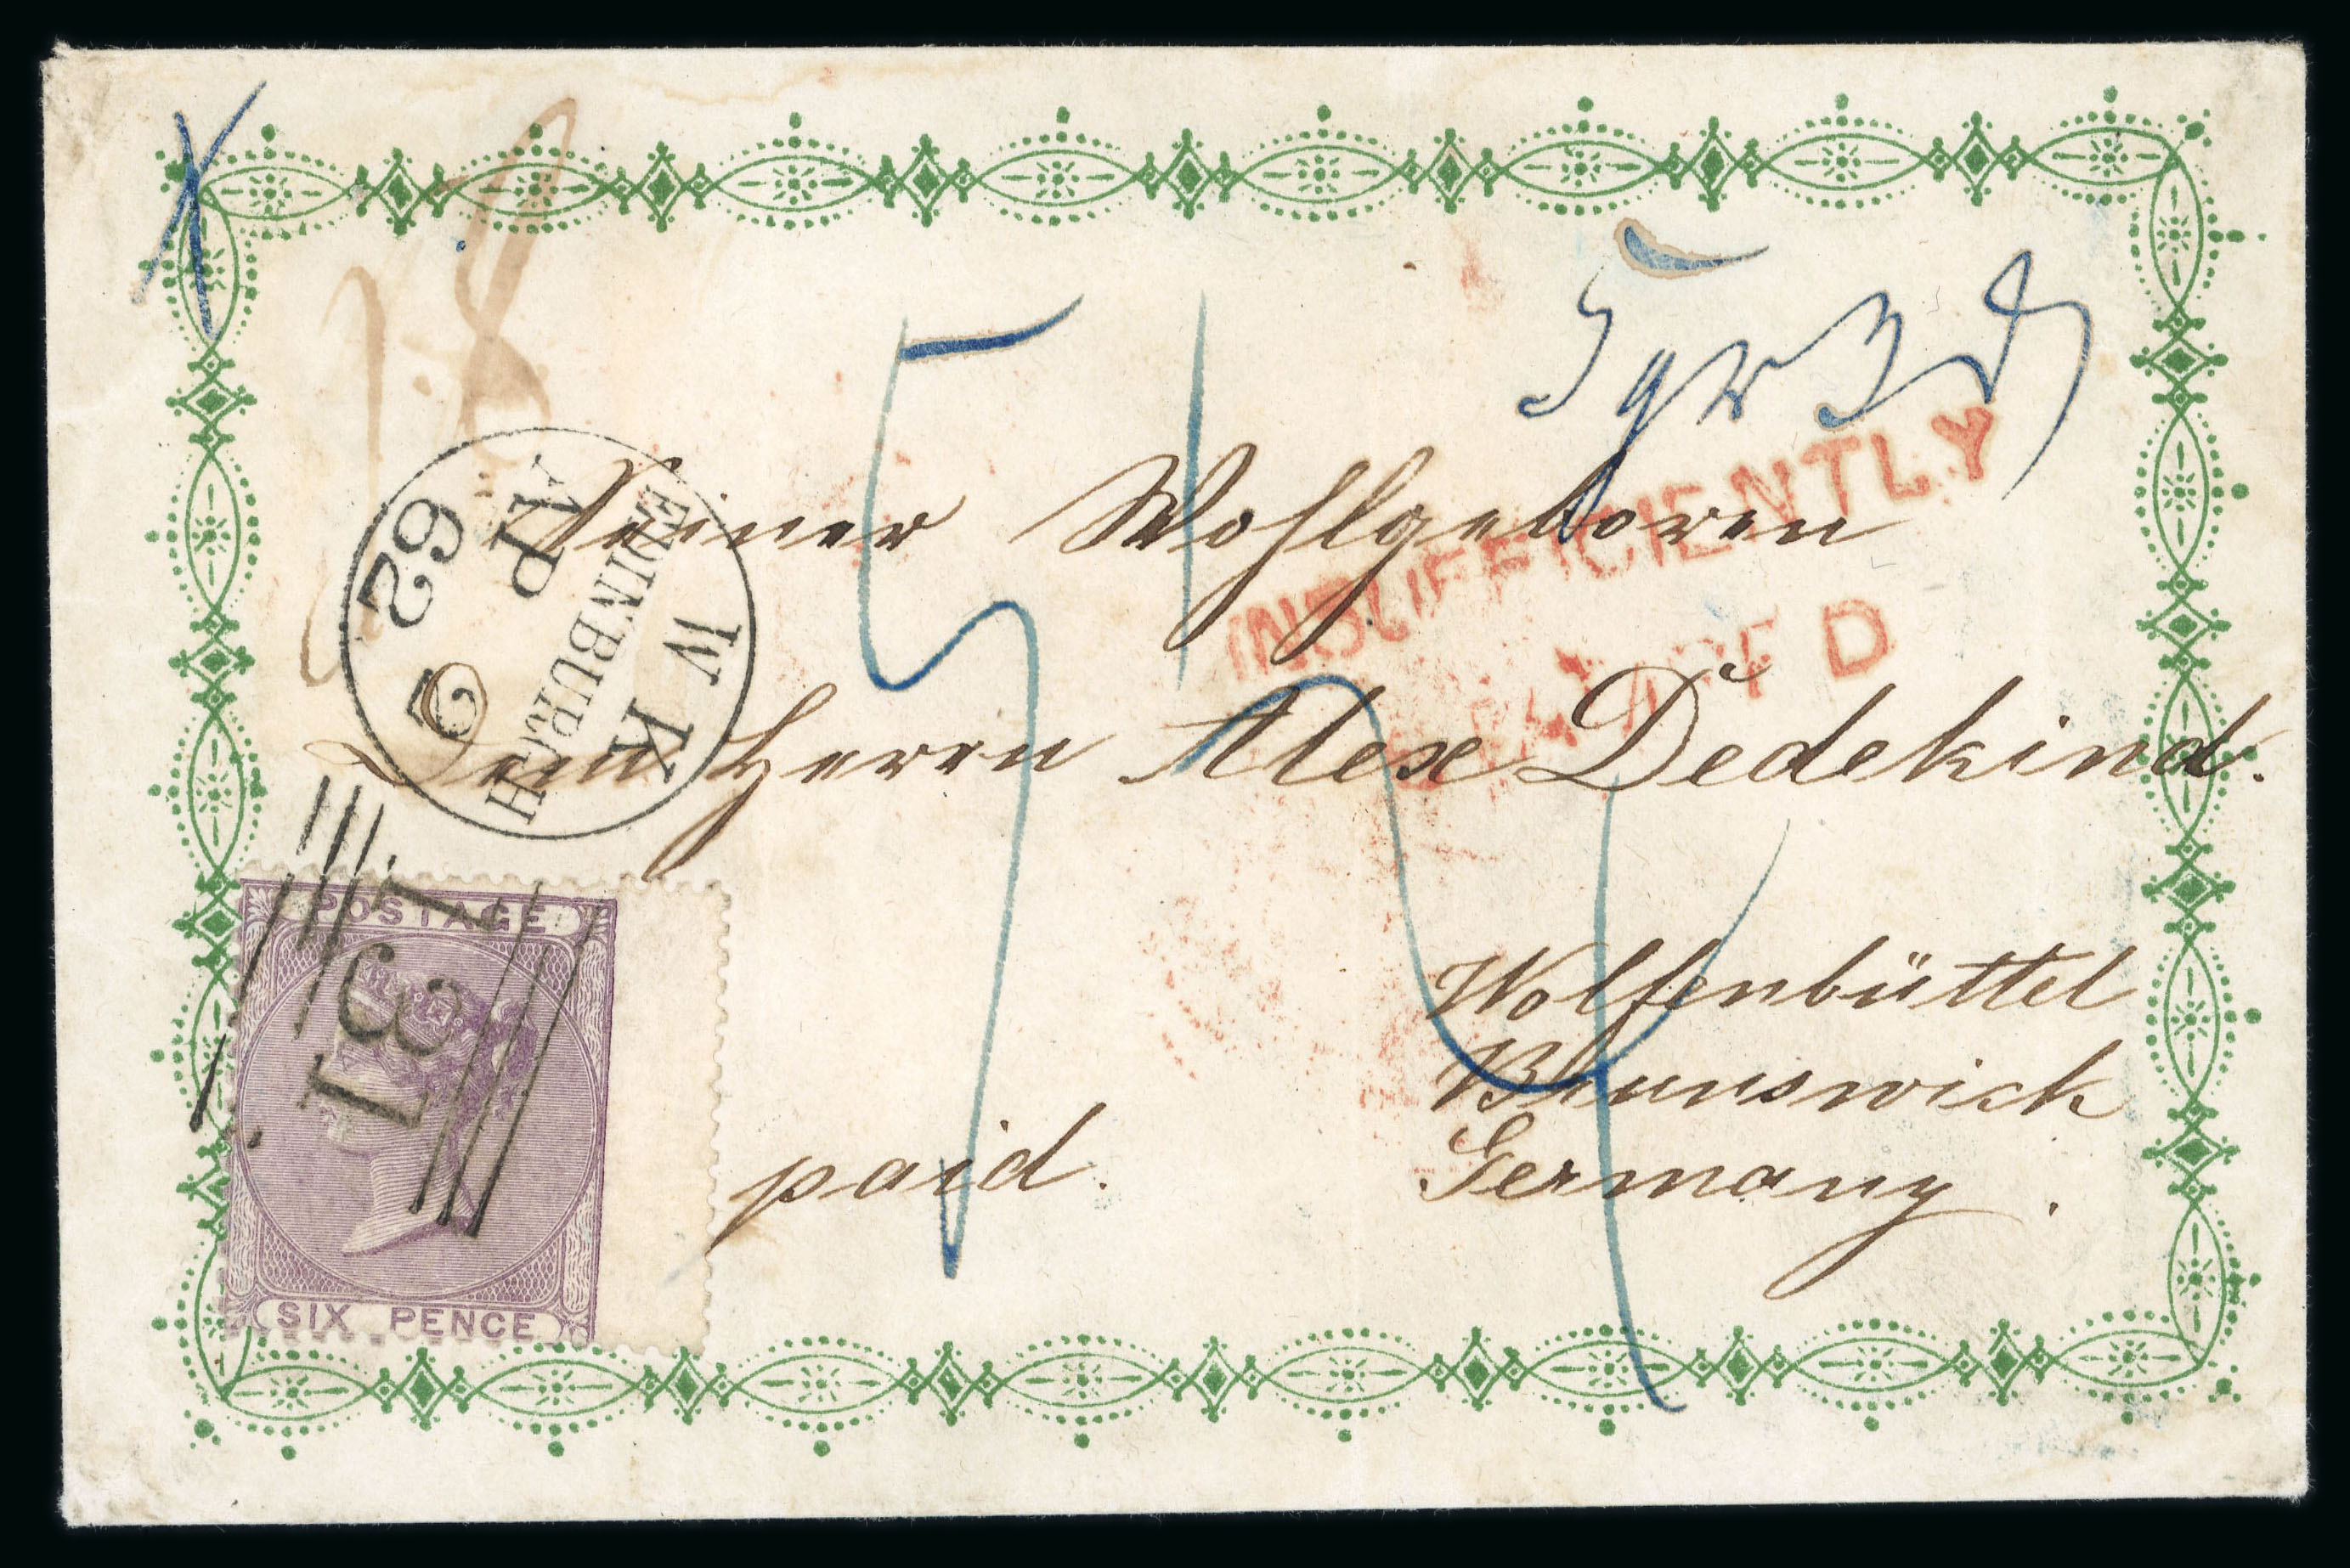 INSUFFICIENTLY
Seiner Wohlgeboren
Dem Herrn Alex Dedekind.
Wolfenbüttel
Brunswick
Germany.
paid.
W K
EDINBURGH
AP
2
62
131
POSTAGE
SIX PENCE
5
4